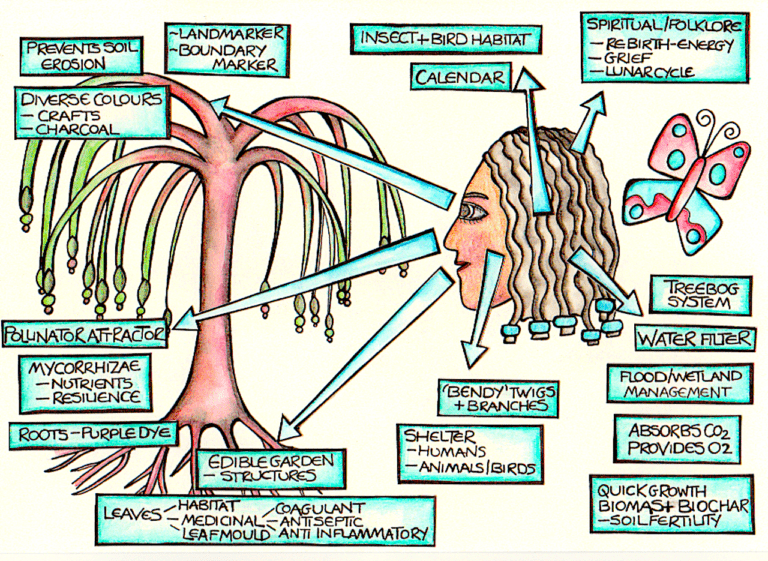 PREVENTS SOIL
EROSION
~LANDMARKER
~BOUNDARY
MARKER
INSECT+BIRD HABITAT
CALENDAR
SPIRITUAL/FOLKLORE
— REBIRTH-ENERGY
— GRIEF
— LUNAR CYCLE
DIVERSE COLOURS
— CRAFTS
— CHARCOAL
TREEBOG
SYSTEM
WATER FILTER
POLLINATOR ATTRACTOR
MYCORRHIZAE
— NUTRIENTS
— RESILIENCE
FLOOD/WETLAND
MANAGEMENT
'BENDY' TWIGS
+ BRANCHES
ROOTS — PURPLE DYE
SHELTER
— HUMANS
— ANIMALS/BIRDS
ABSORBS CO2
PROVIDES O2
EDIBLE GARDEN
— STRUCTURES
QUICK GROWTH
BIOMAS+ BIOCHAR
— SOIL FERTILITY
LEAVES
HABITAT
MEDICINAL
LEAFMOULD
COAGULANT
ANTISEPTIC
ANTI INFLAMMATORY